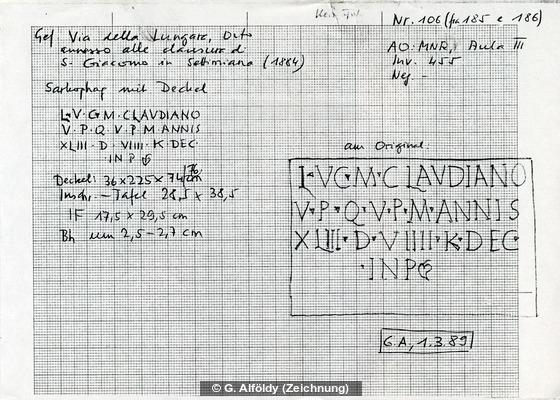 Nr. 106 (fra 185 e 186)
Gef Via della Lungara, Orto
annesso alle clausura di
S. Giacomo in Settimiana (1884)
AO: MNR, Aula III
Inv. 455
Neg. –
Sarkophag mit Deckel
L·V·G·M·CLAVDIANO
V·P·Q·V·P·M·ANNIS
XLIII·D·VIIII·K·DEC·
·IN P
Deckel: 36x225x74/76 cm
Inschr.–Tafel 28,5 x 38,5
IF 17,5 x 29,5 cm
Bh um 2,5–2,7 cm
am Original
L·VC·M·CLAVDIANO
V·P·Q·V·P·M·ANNIS
XLIII·D·VIIII·K·DEC·
·INP
G.A., 1.3.89
© G. Alföldy (Zeichnung)